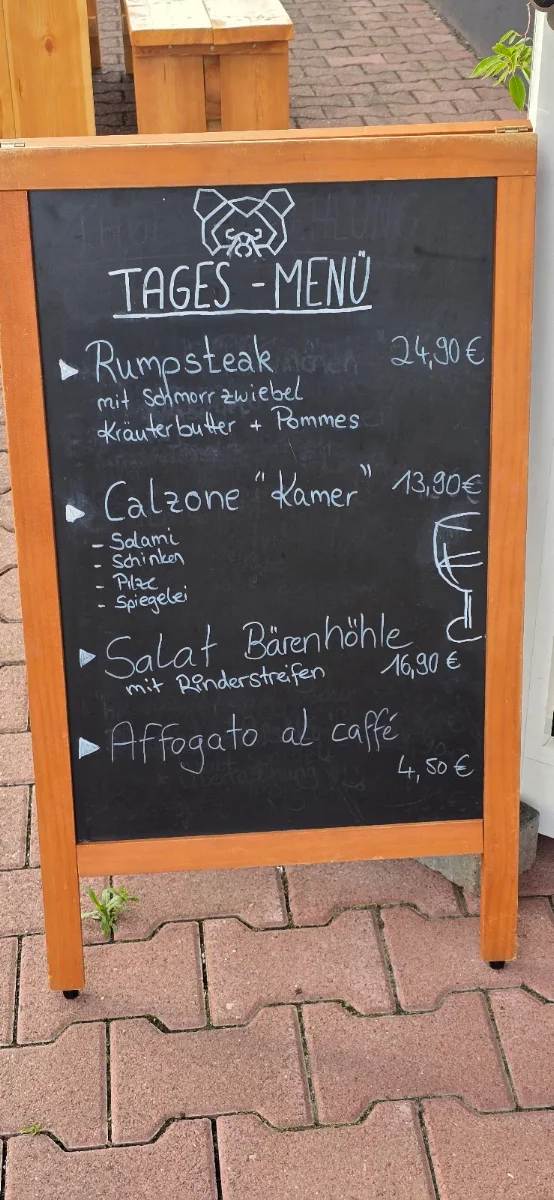 TAGES - MENÜ
Rumpsteak 24,90 €
mit Schmorrzwiebel
Kräuterbutter + Pommes
Calzone "Kamer" 13,90€
- Salami
- Schinken
- Pilze
- Spiegelei
Salat Bärenhöhle
mit Rinderstreifen 16,90 €
Affogato al caffé
4,50 €